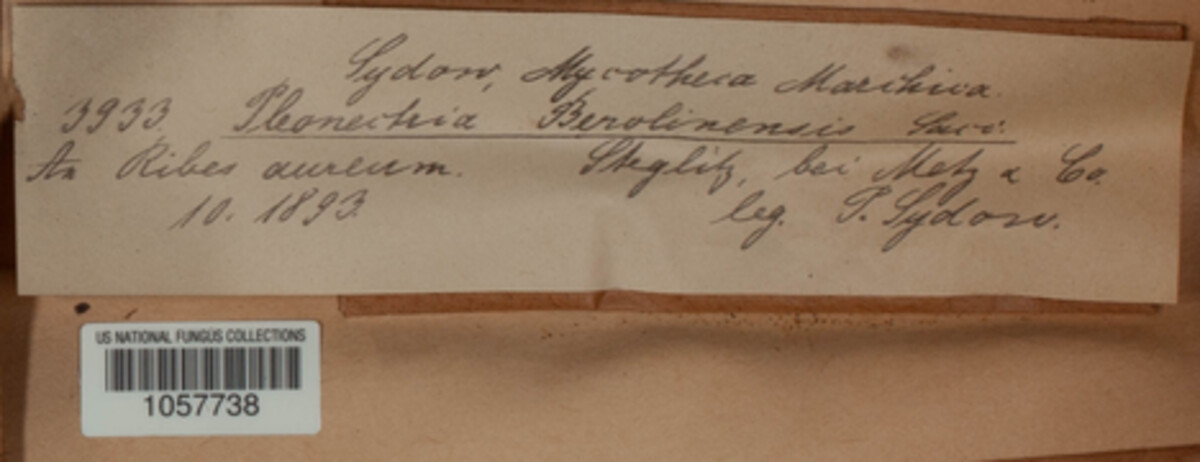 Sydow, Mycotheca Marchica.
3933. Pleonectria Berolinensis Sacc.
An Ribes aureum. Steglitz, bei Metz & Co.
10. 1893. leg. P. Sydow.
US NATIONAL FUNGUS COLLECTIONS
1057738